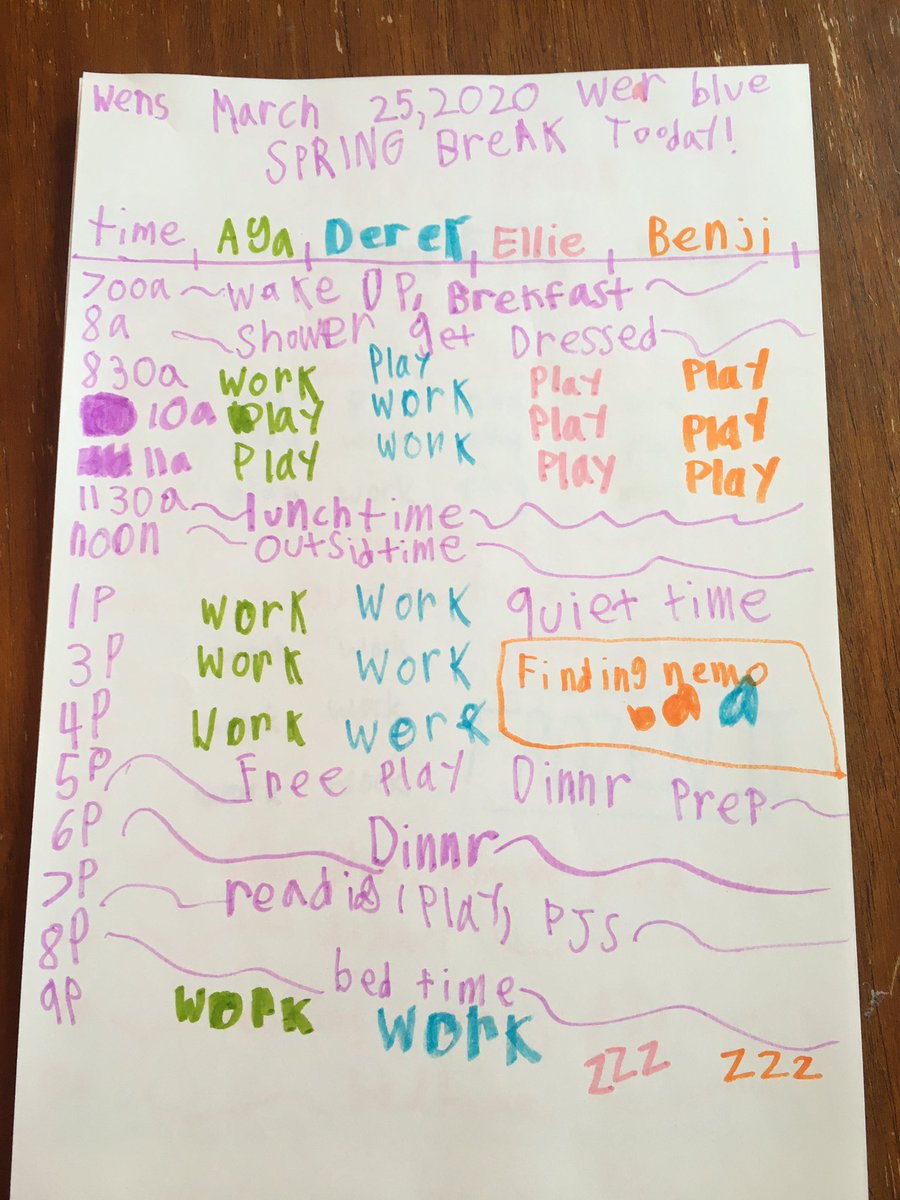 Wens March 25,2020 wer blue
SPRING BreAK Tooday!
time Aya Derek Ellie Benji
700a wake UP, Brekfast
8a Shower get Dressed
830a work Play Play Play
10a Play work Play Play
11a Play work Play Play
1130a lunchtime
noon outsidtime
1P work work quiet time
3P work work Finding nemo
4P work work
5P Free Play Dinnr Prep
6P Dinnr
7P readig / Play, PJS
8P bed time
9P work work zzz zzz